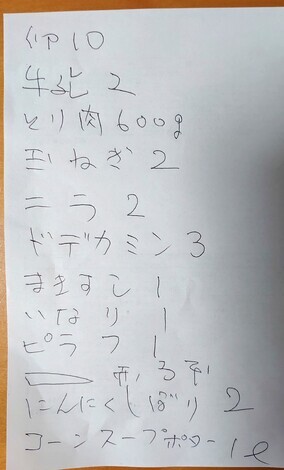 卵10
牛乳 2
とり肉600g
玉ねぎ 2
ニラ 2
ドデカミン3
まきずし 1
いなり 1
ピラフ 1
にんにくしぼり 2
コーンスープポタ